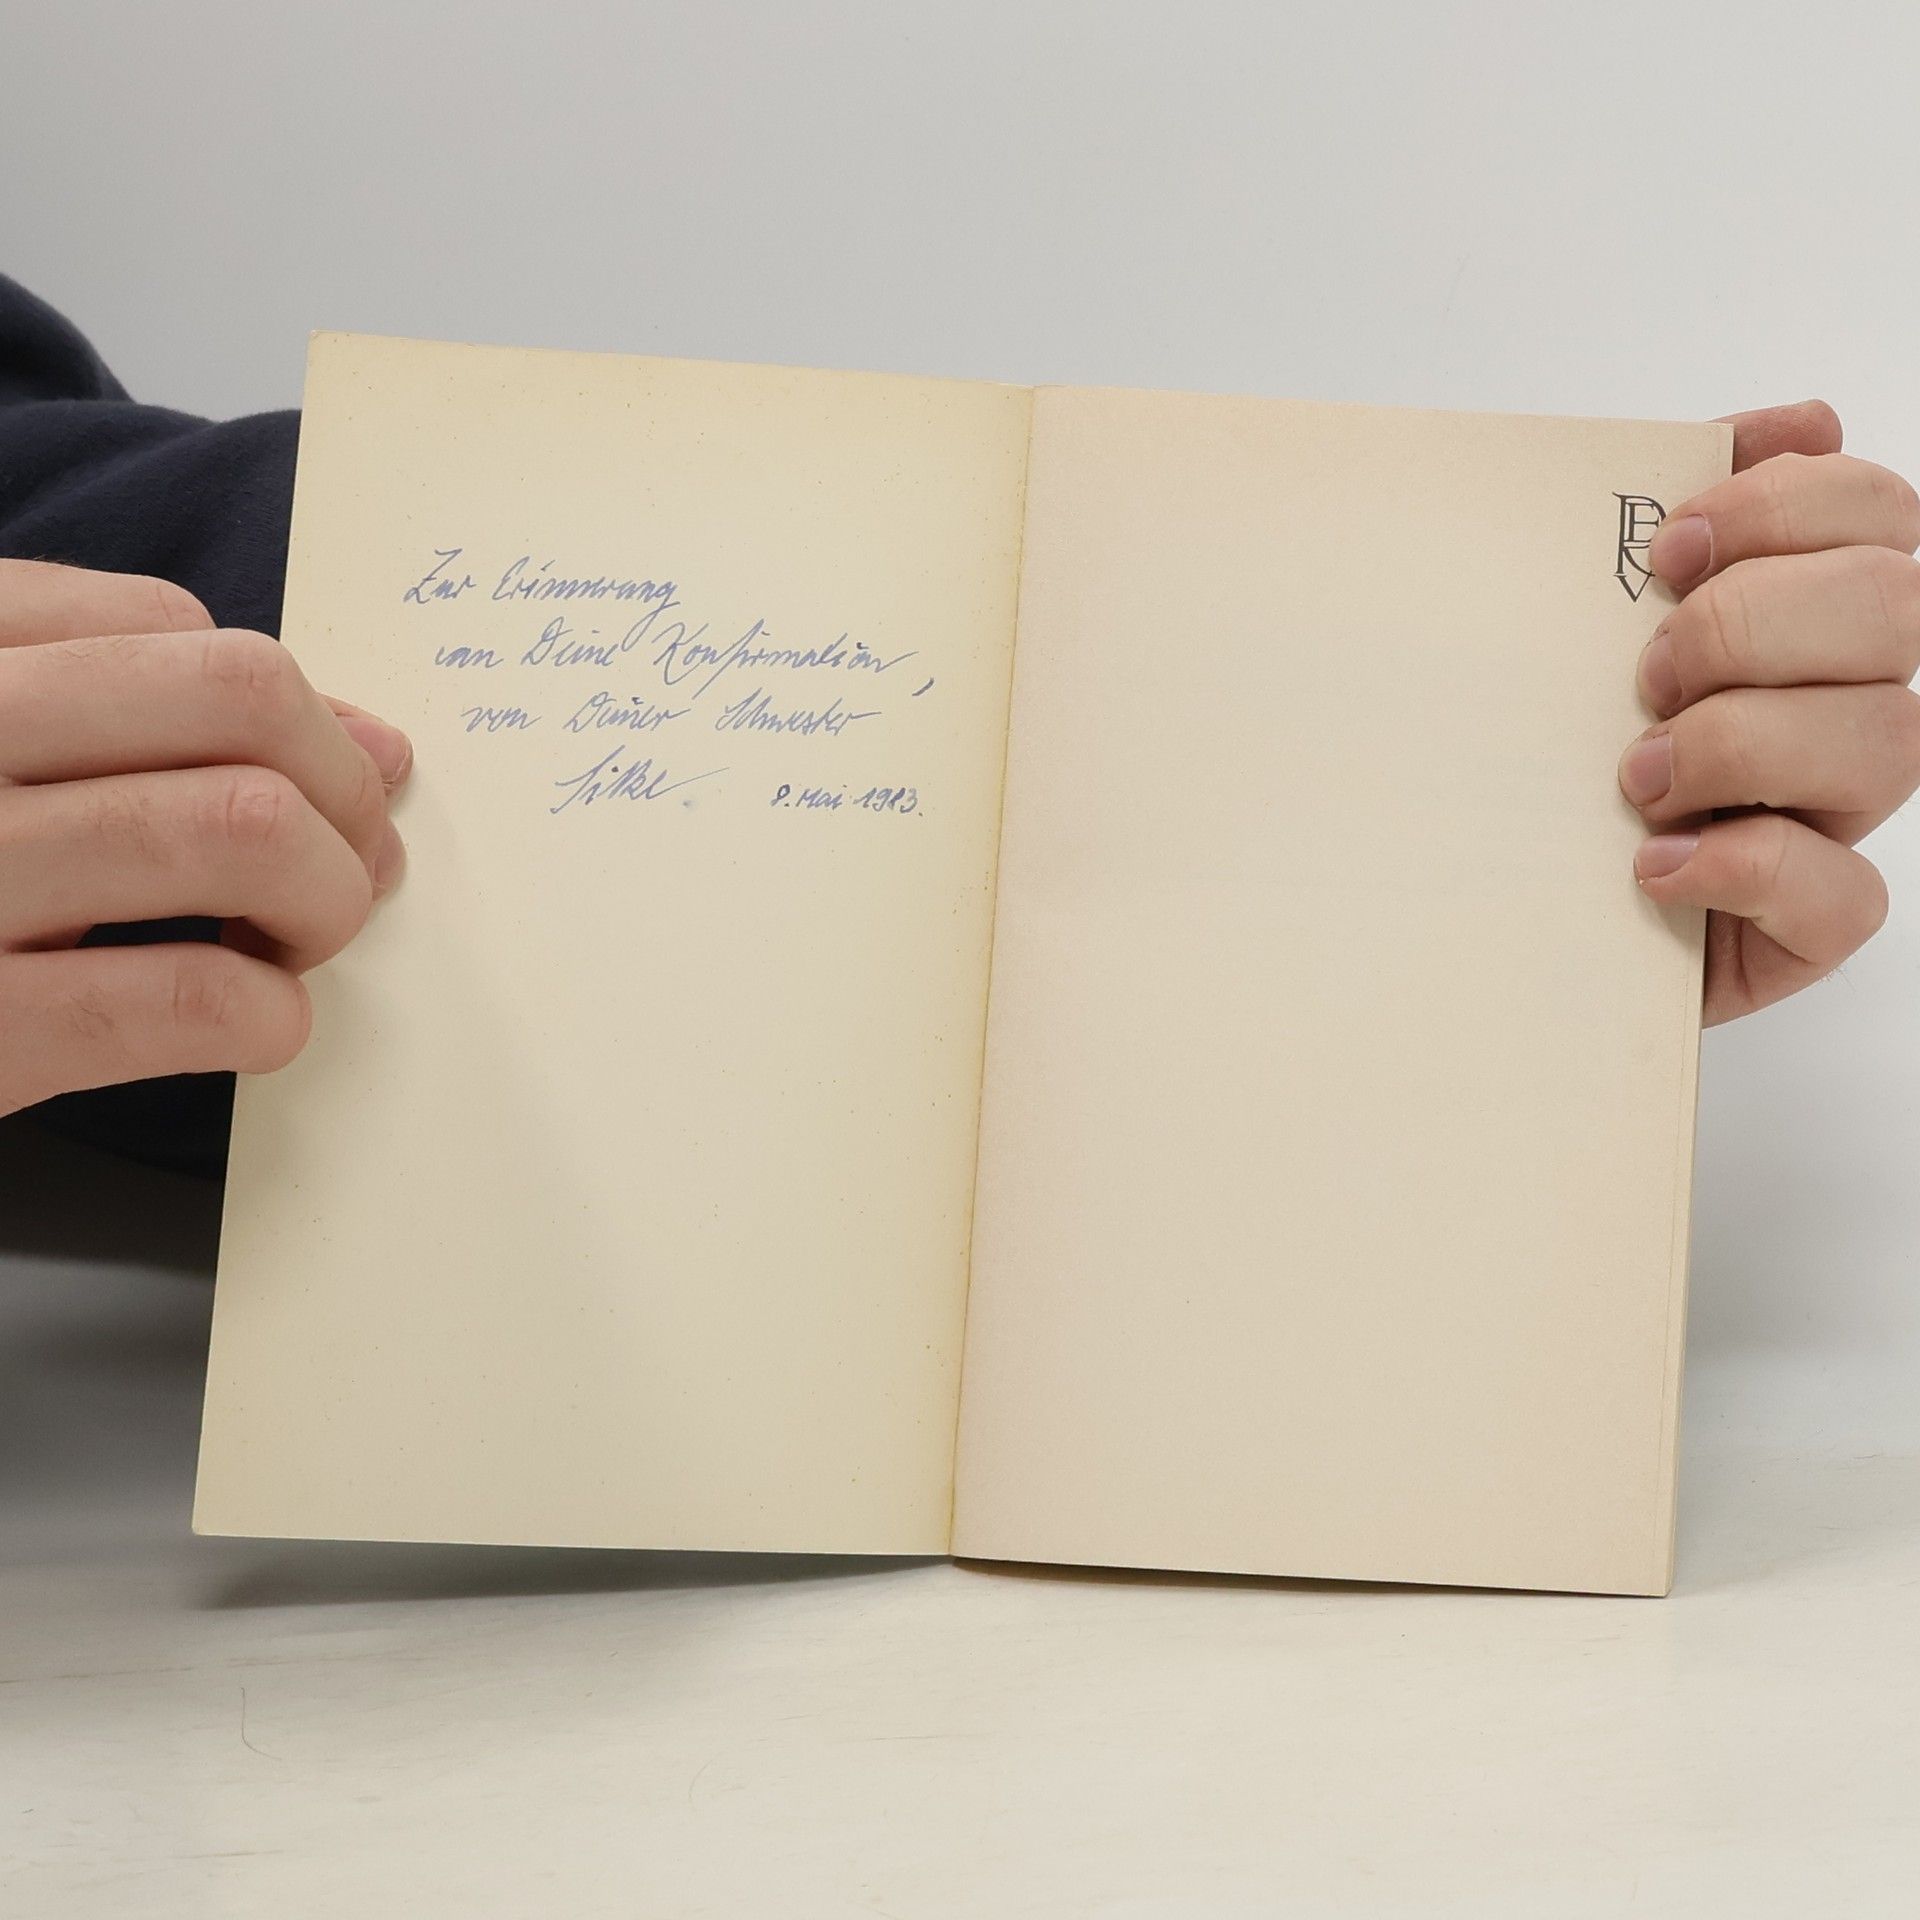 Zur Erinnerung
an Deine Konfirmation,
von Deiner Schwester
Silke. 8. Mai 1983.